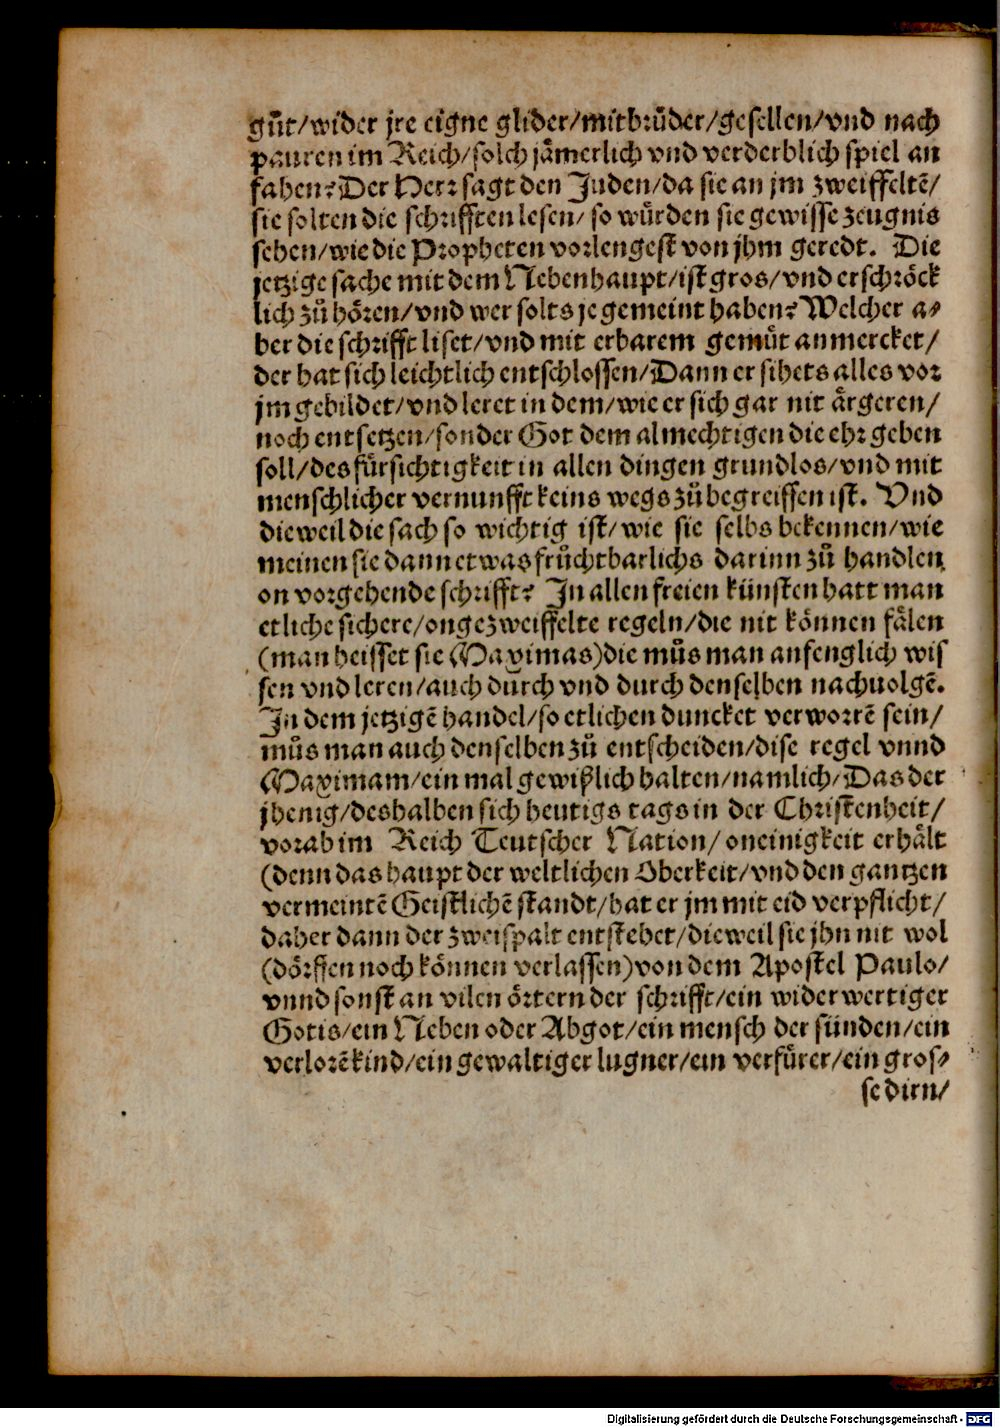 guͦt/wider jre eigne glider/mitbruͤder/gesellen/vnd nach
pauren im Reich/solch jaͤmerlich vnd verderblich spiel an
fahen? Der Herr sagt den Juden/da sie an jm zweiffeltē/
sie solten die schrifften lesen/ so wuͤrden sie gewisse zeugnis
sehen/wie die Propheten vorlengest von jhm geredt. Die
jetzige sache mit dem Nebenhaupt/ist gros/vnd erschroͤck
lich zuͦ hoͤren/vnd wer solts je gemeint haben? Welcher a⸗
ber die schrifft liset/vnd mit erbarem gemuͤt anmercket/
der hat sich leichtlich entschlossen/Dann er sihets alles vor
jm gebildet/vnd leret in dem/wie er sich gar nit aͤrgeren/
noch entsetzen/sonder Got dem almechtigen die ehr geben
soll/des fuͤrsichtigkeit in allen dingen grundlos/vnd mit
menschlicher vernunfft keins wegs zuͦ begreiffen ist. Vnd
dieweil die sach so wichtig ist/wie sie selbs bekennen/wie
meinen sie dann etwas fruͤchtbarlichs darinn zuͦ handlen
on vorgehende schrifft? In allen freien kuͤnsten hatt man
etliche sichere/ongezweiffelte regeln/die nit koͤnnen faͤlen
(man heisset sie Maximas)die muͦs man anfenglich wis
sen vnd leren/auch durch vnd durch denselben nachuolgē.
In dem jetzigē handel/so etlichen duncket verworrē sein/
muͦs man auch denselben zuͦ entscheiden/dise regel vnnd
Maximam/ein mal gewißlich halten/namlich/Das der
jhenig/deshalben sich heutigs tags in der Christenheit/
vorab im Reich Teutscher Nation/ oneinigkeit erhaͤlt
(denn das haupt der weltlichen Oberkeit/vnd den gantzen
vermeintē Geistlichē standt/hat er jm mit eid verpflicht/
daher dann der zweispalt entstehet/dieweil sie jhn nit wol
(doͤrffen noch koͤnnen verlassen)von dem Apostel Paulo/
vnnd sonst an vilen oͤrtern der schrifft/ein widerwertiger
Gotis/ein Neben oder Abgot/ein mensch der suͤnden/ein
verlorē kind/ein gewaltiger lugner/ein verfuͤrer/ein gros⸗
se dirn/
Digitalisierung gefördert durch die Deutsche Forschungsgemeinschaft - DFG